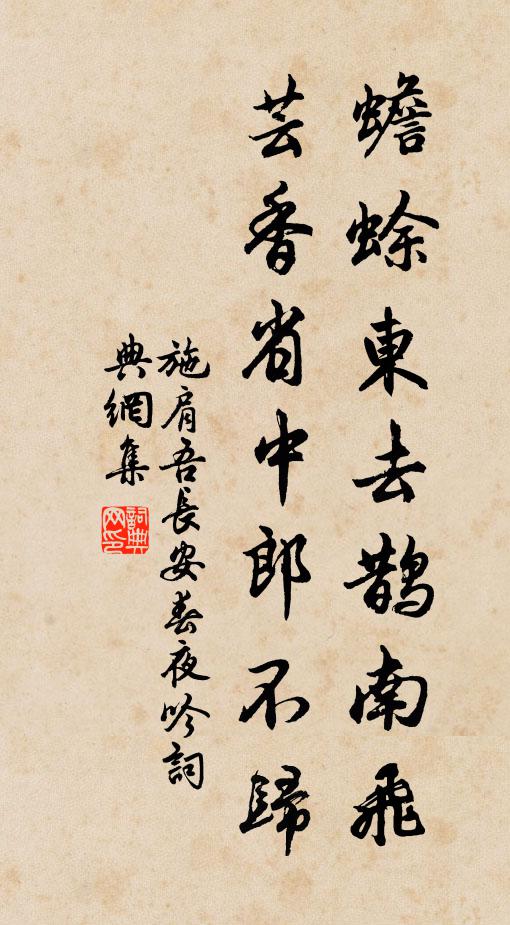 蟾蜍東去鵲南飛
芸香省中郎不歸
施肩吾長安春夜吟詞
典網集
詞典網印